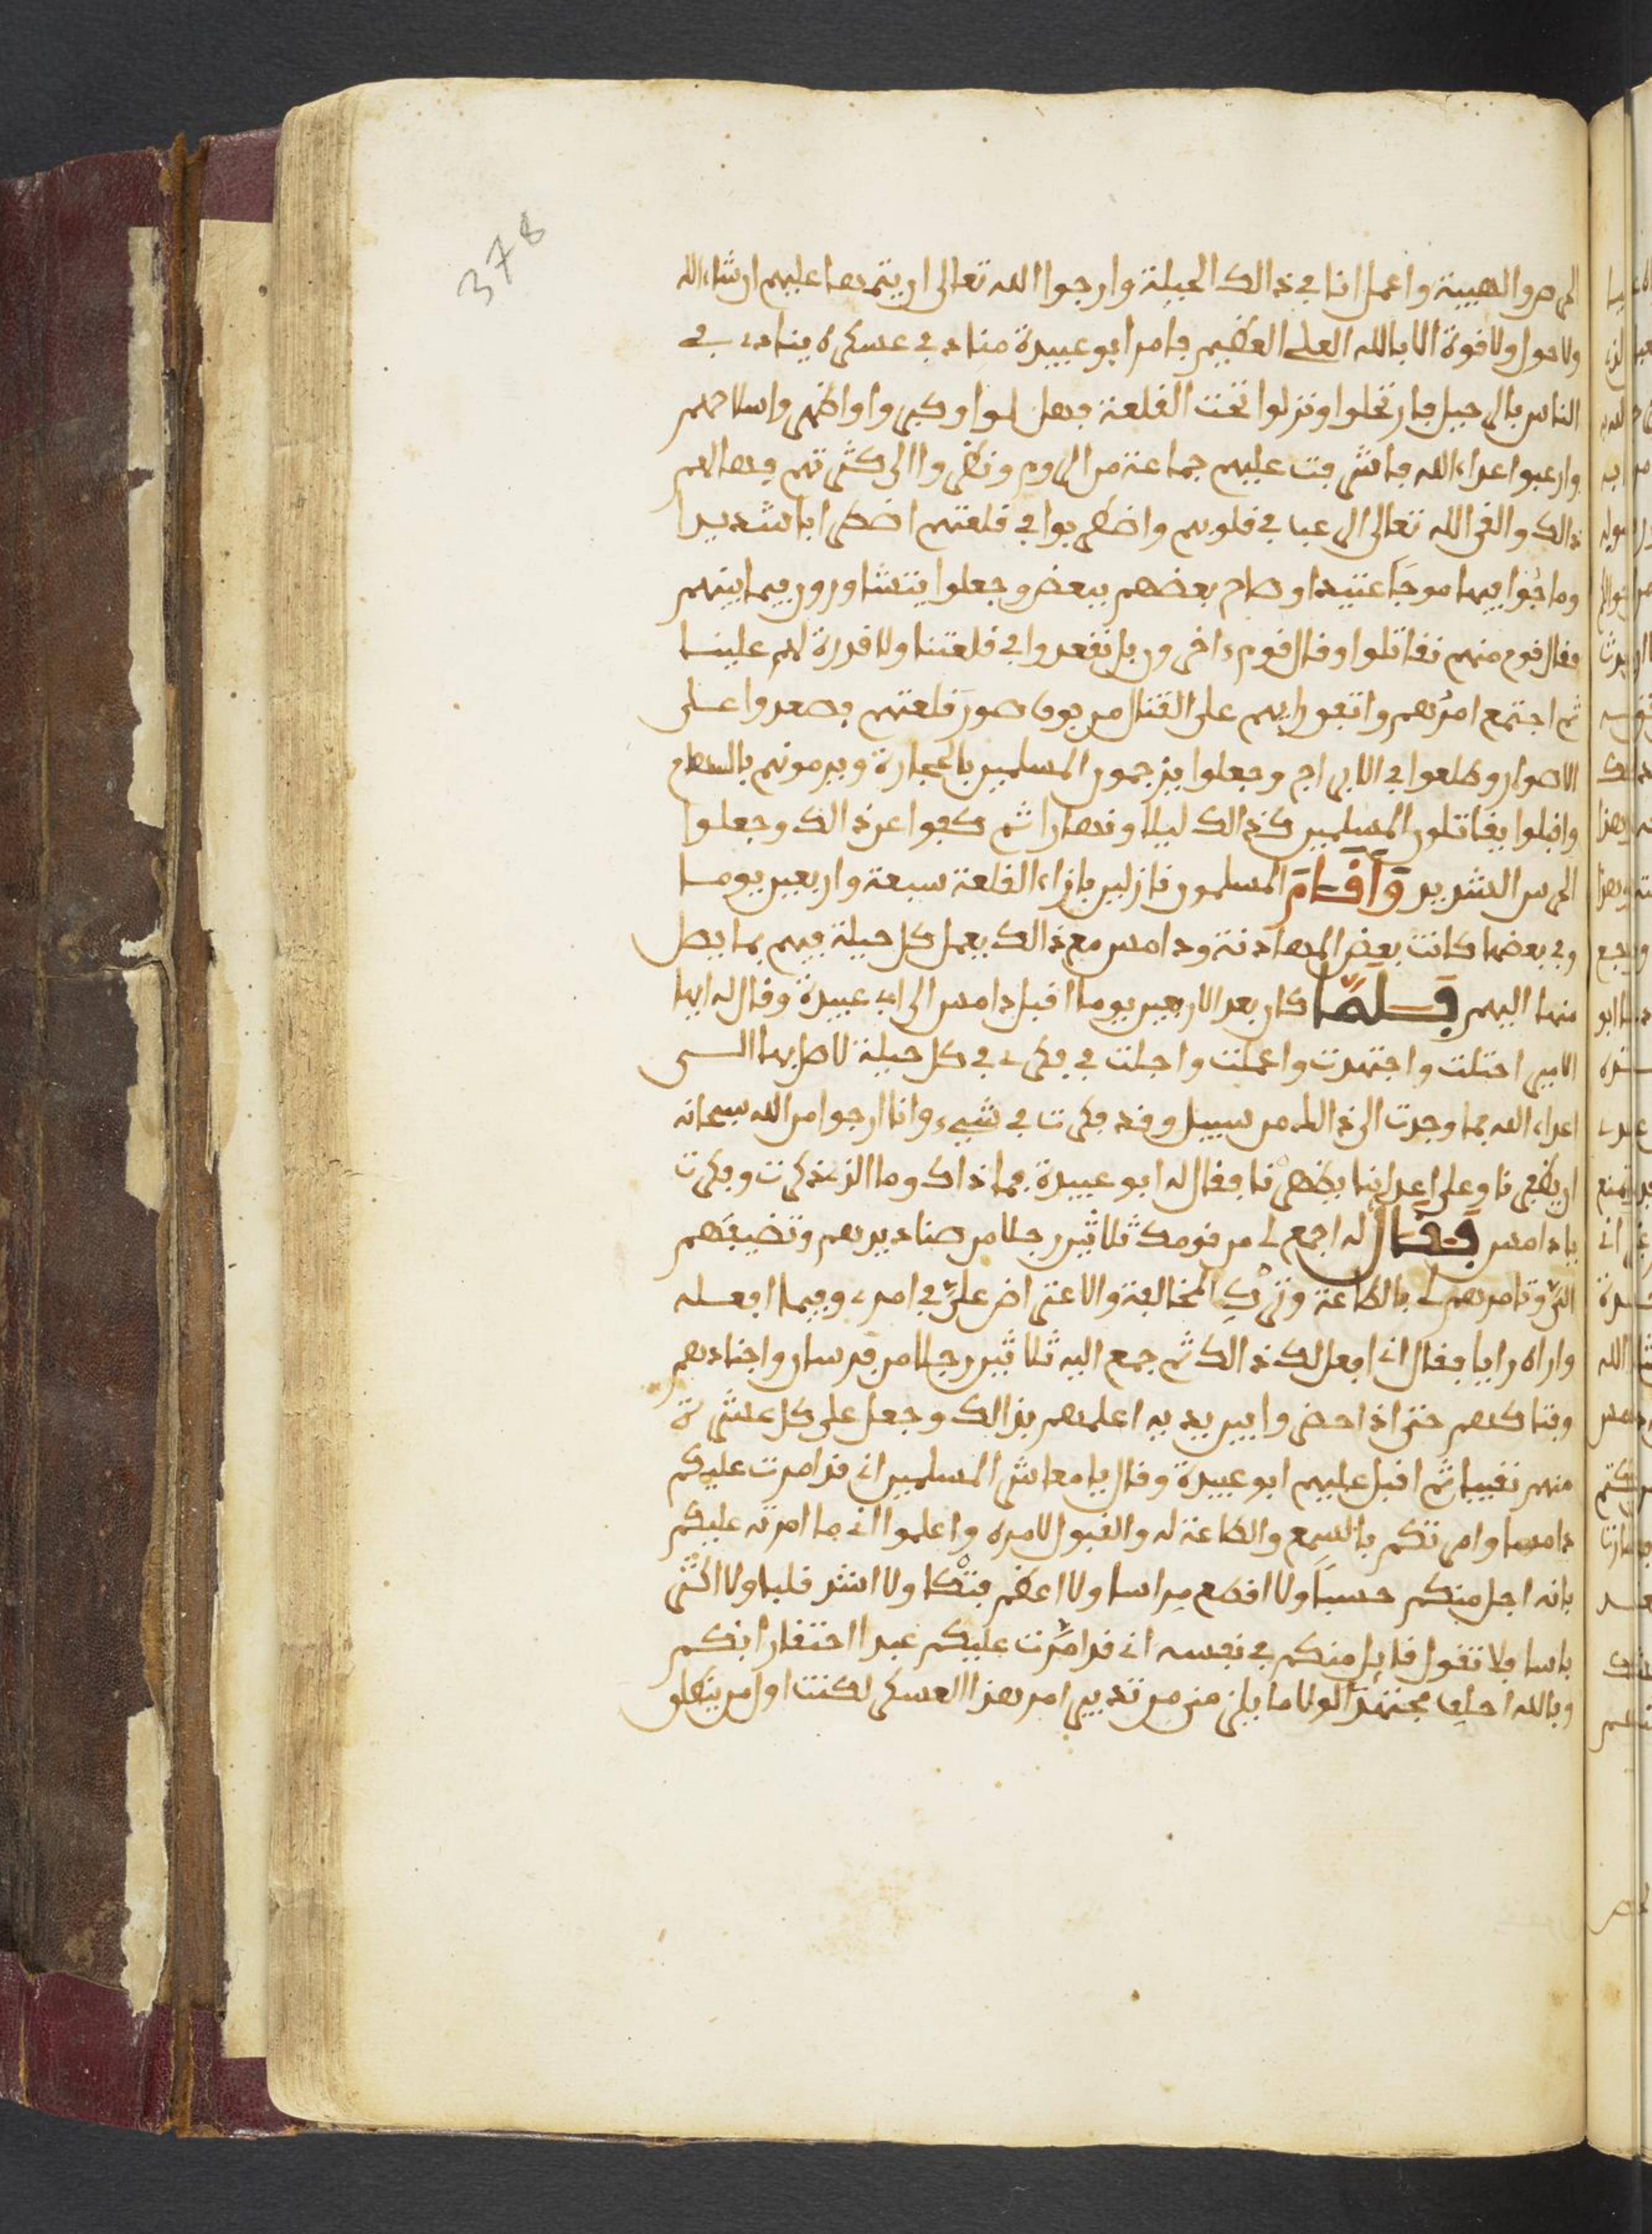 378
الحرص والهيبة واعمل انا في ذالك الحيلة وارجوا الله تعالى ان يتمها عليهم ان شاء الله
ولا حول ولا قوة الا بالله العلي العظيم فامر ابو عبيدة مناد في عسكره ينادي في
الناس بالرحيل فارتحلوا ونزلوا تحت القلعة فهللوا وكبروا واظهروا سلاحهم
وارعبوا اعداء الله فاشرفت عليهم جماعة من الروم ونظروا الى كثرتهم فهالهم
ذالك والقى الله تعالى الرعب في قلوبهم واضطربوا في قلعتهم اضطرابا شديدا
وماجوا فيها موجا عتيدا وصاح بعضهم ببعض وجعلوا يتشاورون فيما بينهم
فقال قوم منهم نقاتلوا وقال قوم ءاخرون بل نقعدوا في قلعتنا ولا قدرة لهم علينا
ثم اجتمع امرهم واتفق رايهم على القتال من فوق صور قلعتهم فصعدوا على
الاصوار وطلعوا في الابراج وجعلوا يرجمون المسلمين بالحجارة ويرمونهم بالسهام
واقبلوا يقاتلون المسلمين كذالك ليلا ونهارا ثم كفوا عن ذالك وجعلوا
الحرس الشديد وأقام المسلمون نازلين بازاء القلعة سبعة واربعين يوما
وفي بعضها كانت بعض المهادنة ودامس مع ذالك يعمل كل حيلة فيهم بما يصل
منها اليهم فلما كان بعد الاربعين يوما اقبل دامس الى ابي عبيدة وقال له ايها
الامير احتلت واجتهدت واعملت واجلت في فكري في كل حيلة لاصل بها الى
اعداء الله فما وجدت الى ذالك من سبيل وقد فكرت في شيء وانا ارجوا من الله سبحانه
ان يظفرنا وعلى اعداينا يظهرنا فقال له ابو عبيدة فما ذاك وما الذي ذكرت وفكرت
يا دامس فقال له اجمع لي من قومك ثلاثين رجلا من صناديدهم وتضيفهم
الي وتامرهم لي بالطاعة وترك المخالفة والاعتراض علي في امري وفيما افعله
واراه رايا فقال اني افعل لك ذالك ثم جمع اليه ثلاثين رجلا من فرسان واجنادهم
وفتاكهم حتى اذا حضروا بين يديه اعلمهم بذالك وجعل على كل عشرة
منهم نقيبا ثم اقبل عليهم ابو عبيدة وقال يا معاشر المسلمين اني قد امرت عليكم
دامسا وامرتكم بالسمع والطاعة له والقبول لامره واعلموا اني ما امرته عليكم
بانه اجل منكم حسبا ولا افضع مراسا ولا اعظم فتكا ولا اشد قلبا ولا اكثر
باسا فلا تقول قايل منكم في نفسه اني قد امرت عليكم عبدا احتقارا بكم
وبالله احلف مجتهدا لولا ما يلزمني من تدبير امر هذا العسكر لكنت اول من ينطلق